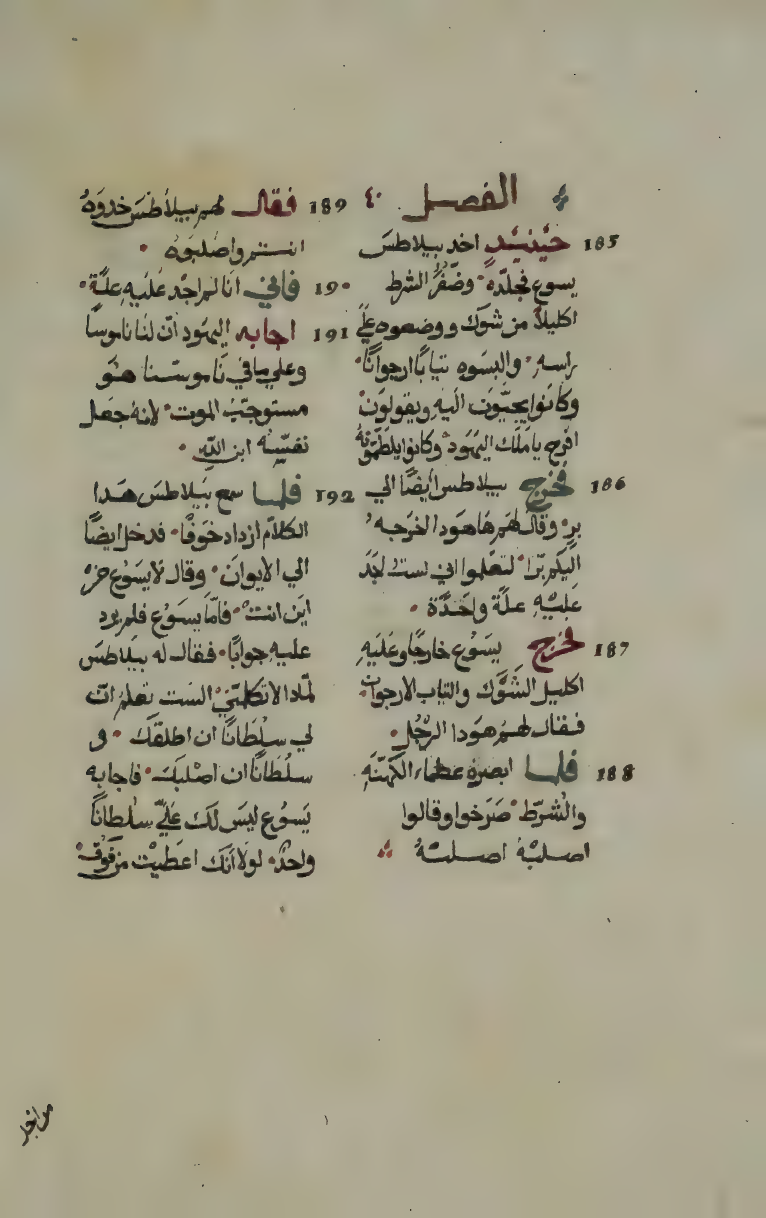 الفصل ٤٠
185 حينيذٍ اخد بيلاطس
يسوع فجلّده وضفرُ الشرط
اكليلاً من شوك ووضعوه علي
راسه والبسوه تيابًا ارجوانًا
وكانوا يجيّون اليه ويقولون
افرح يا ملك اليهود وكانوا يلطمونهُ
186 فخرج بيلاطس ايضًا الي
برٍ وقال لهم هاهودا اخرجه
اليكم برّا لتعلموا اني لست اجد
عليهِ علّة واحدة
187 فخرج يسوع خارجًا وعليهِ
اكليل الشوك والتياب الارجوان
فقال لهم هودا الرجُل
188 فلما ابصره عظماء الكهنهِ
والشرط صرخوا وقالوا
اصلبهُ اصلبهُ
189 فقال لهم بيلاطس خدوهُ
انتم واصلبوه
190 فاني انا لم اجد عليه علّة
191 اجابه اليهود انّ لنا ناموسًا
وعلي ما في ناموسنا هو
مستوجب الموت لانه جعل
نفسه ابن الله
192 فلما سمع بيلاطس هدا
الكلام ازداد خوفًا فدخل ايضًا
الي الايوان وقال لايسوع من
اين انت فامّا يسوع فلم يرد
عليه جوابًا فقال له بيلاطس
لمادا لا تكلمني الست تعلم انّ
لي سلطانًا ان اطلقك و لي
سلطانًا ان اصلبك فاجابه
يسوع ليس لك عليّ سلطانًا
واحدٌ لولا انّك اعطيت من فوق
من اجل